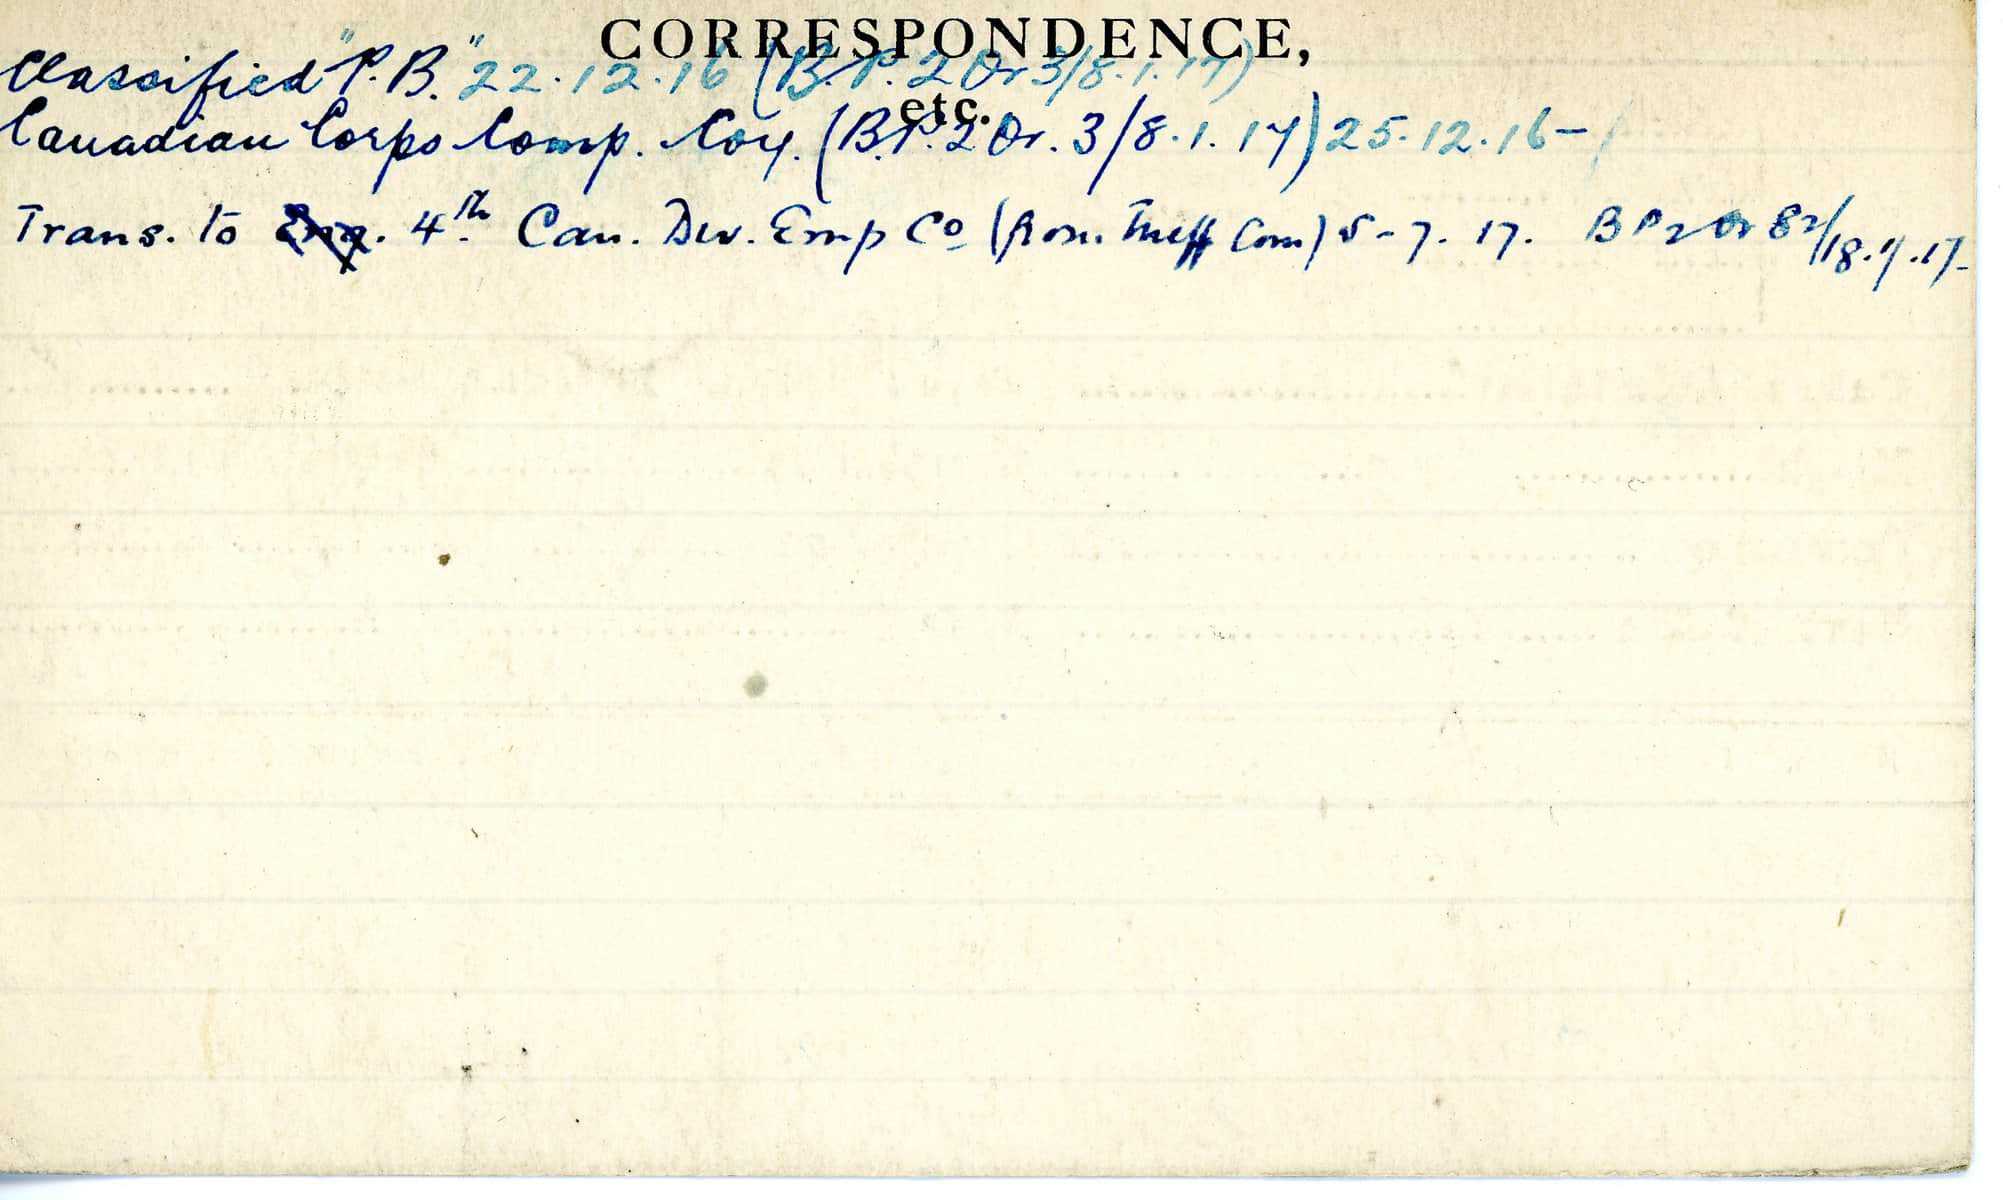 CORRESPONDENCE,
Classified "P.B." 22.12.16 (B.P.2 Or 3/8.1.17)
etc.
Canadian Corps Comp. Coy. (B.P.2 Or. 3/8.1.17) 25.12.16-
Trans. to 4th Can. Div. Emp Co (from Com) 5-7.17. B P 2 Or 82/18.7.17-